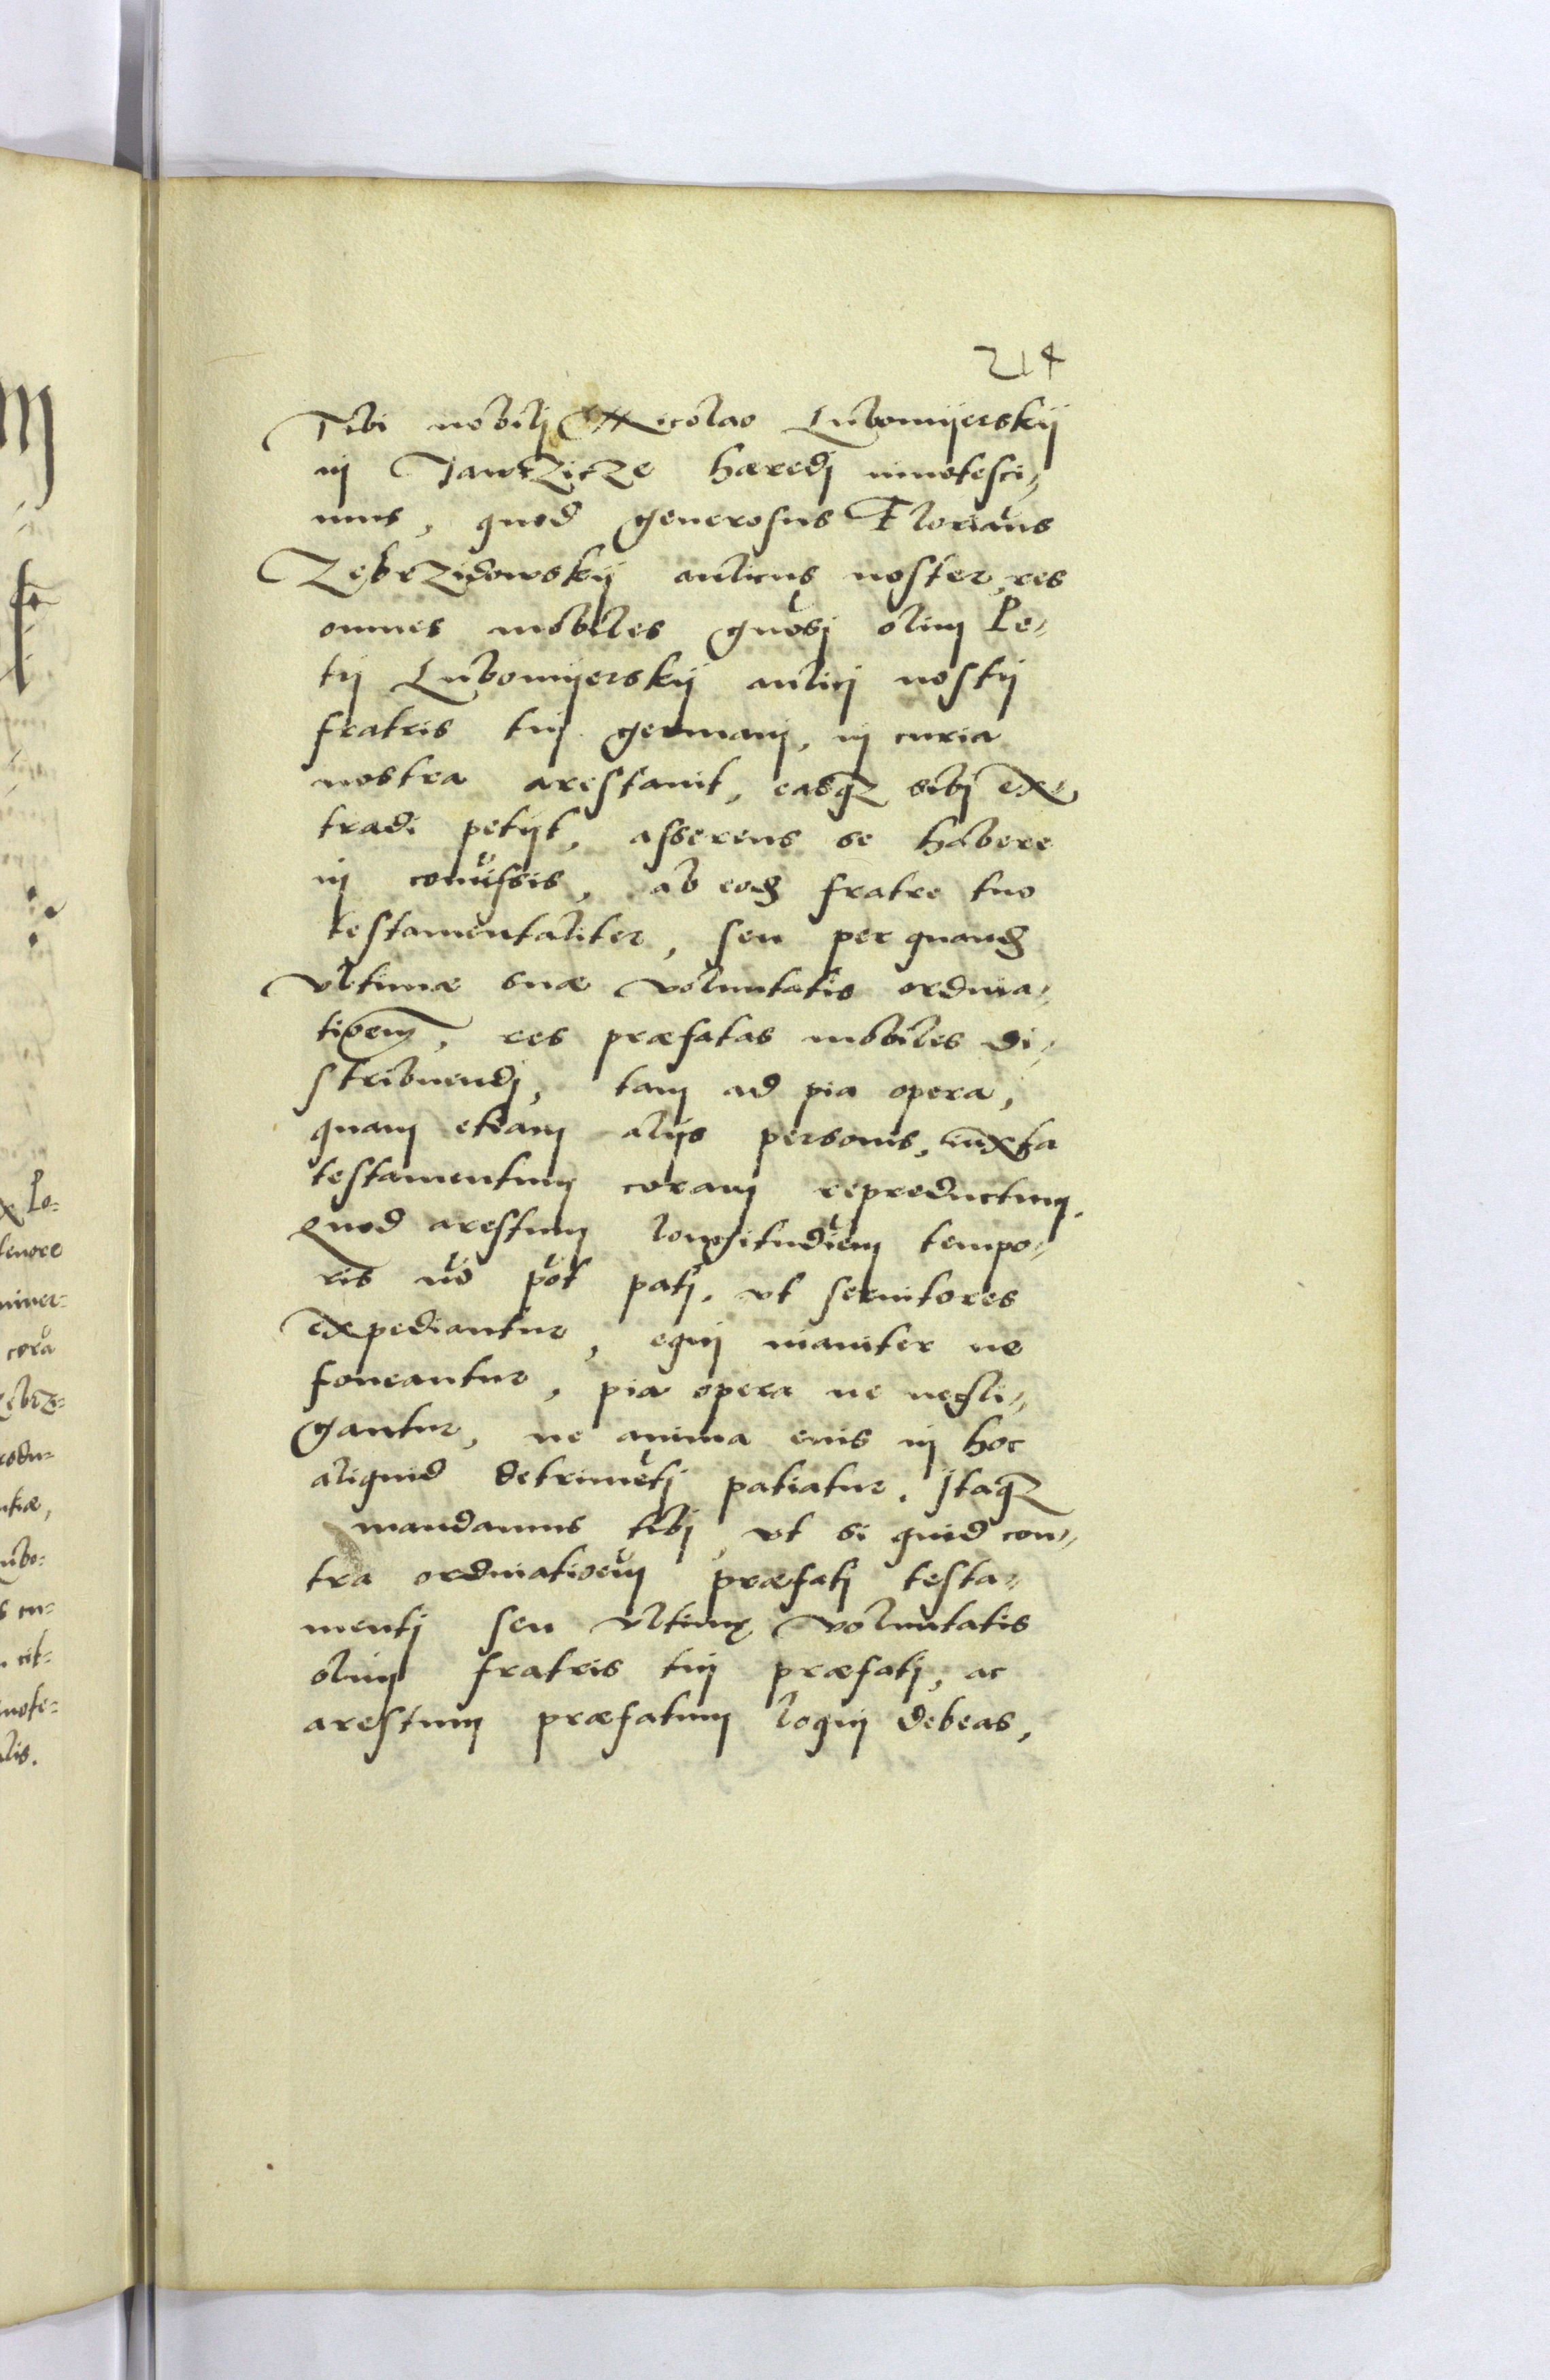 214
Tibi nobilj Nicolao Lubomijerskij
in Jawczicze hæredj innotesci⸗
mus, quod generosus Florianus
Zebrzidowskij aulicus noster, res
omnes mobiles gnosj olim Pe⸗
trj Lubomijerskij aulicj nostrj
fratris tuj germanj, in curia
nostra arestauit, easq₃ sibj ex⸗
tradi petijt, asserens se habere
in comissis, ab eod fratre tuo
testamentaliter, seu per quand
vltimæ suæ voluntatis ordina⸗
tioem, res præfatas mobiles di⸗
stribuendj, tam ad pia opera,
quam etiam alijs personis, iuxta
testamentum coram reproductum.
Quod arestum longitudiem tempo⸗
ris no pot patj, vt seruitores
expediantur, equj inaniter ne
foueantur, pia opera ne negli⸗
gantur, ne anima eius in hoc
aliquid detrimetj patiatur. Itaq₃
mandamus tibj, vt si quid con⸗
tra ordinatioem præfatj testa⸗
mentj seu vltimę voluntatis
olim fratris tuj præfatj, ac
arestum præfatum loquj debeas,
Pe⸗
tenore
cora